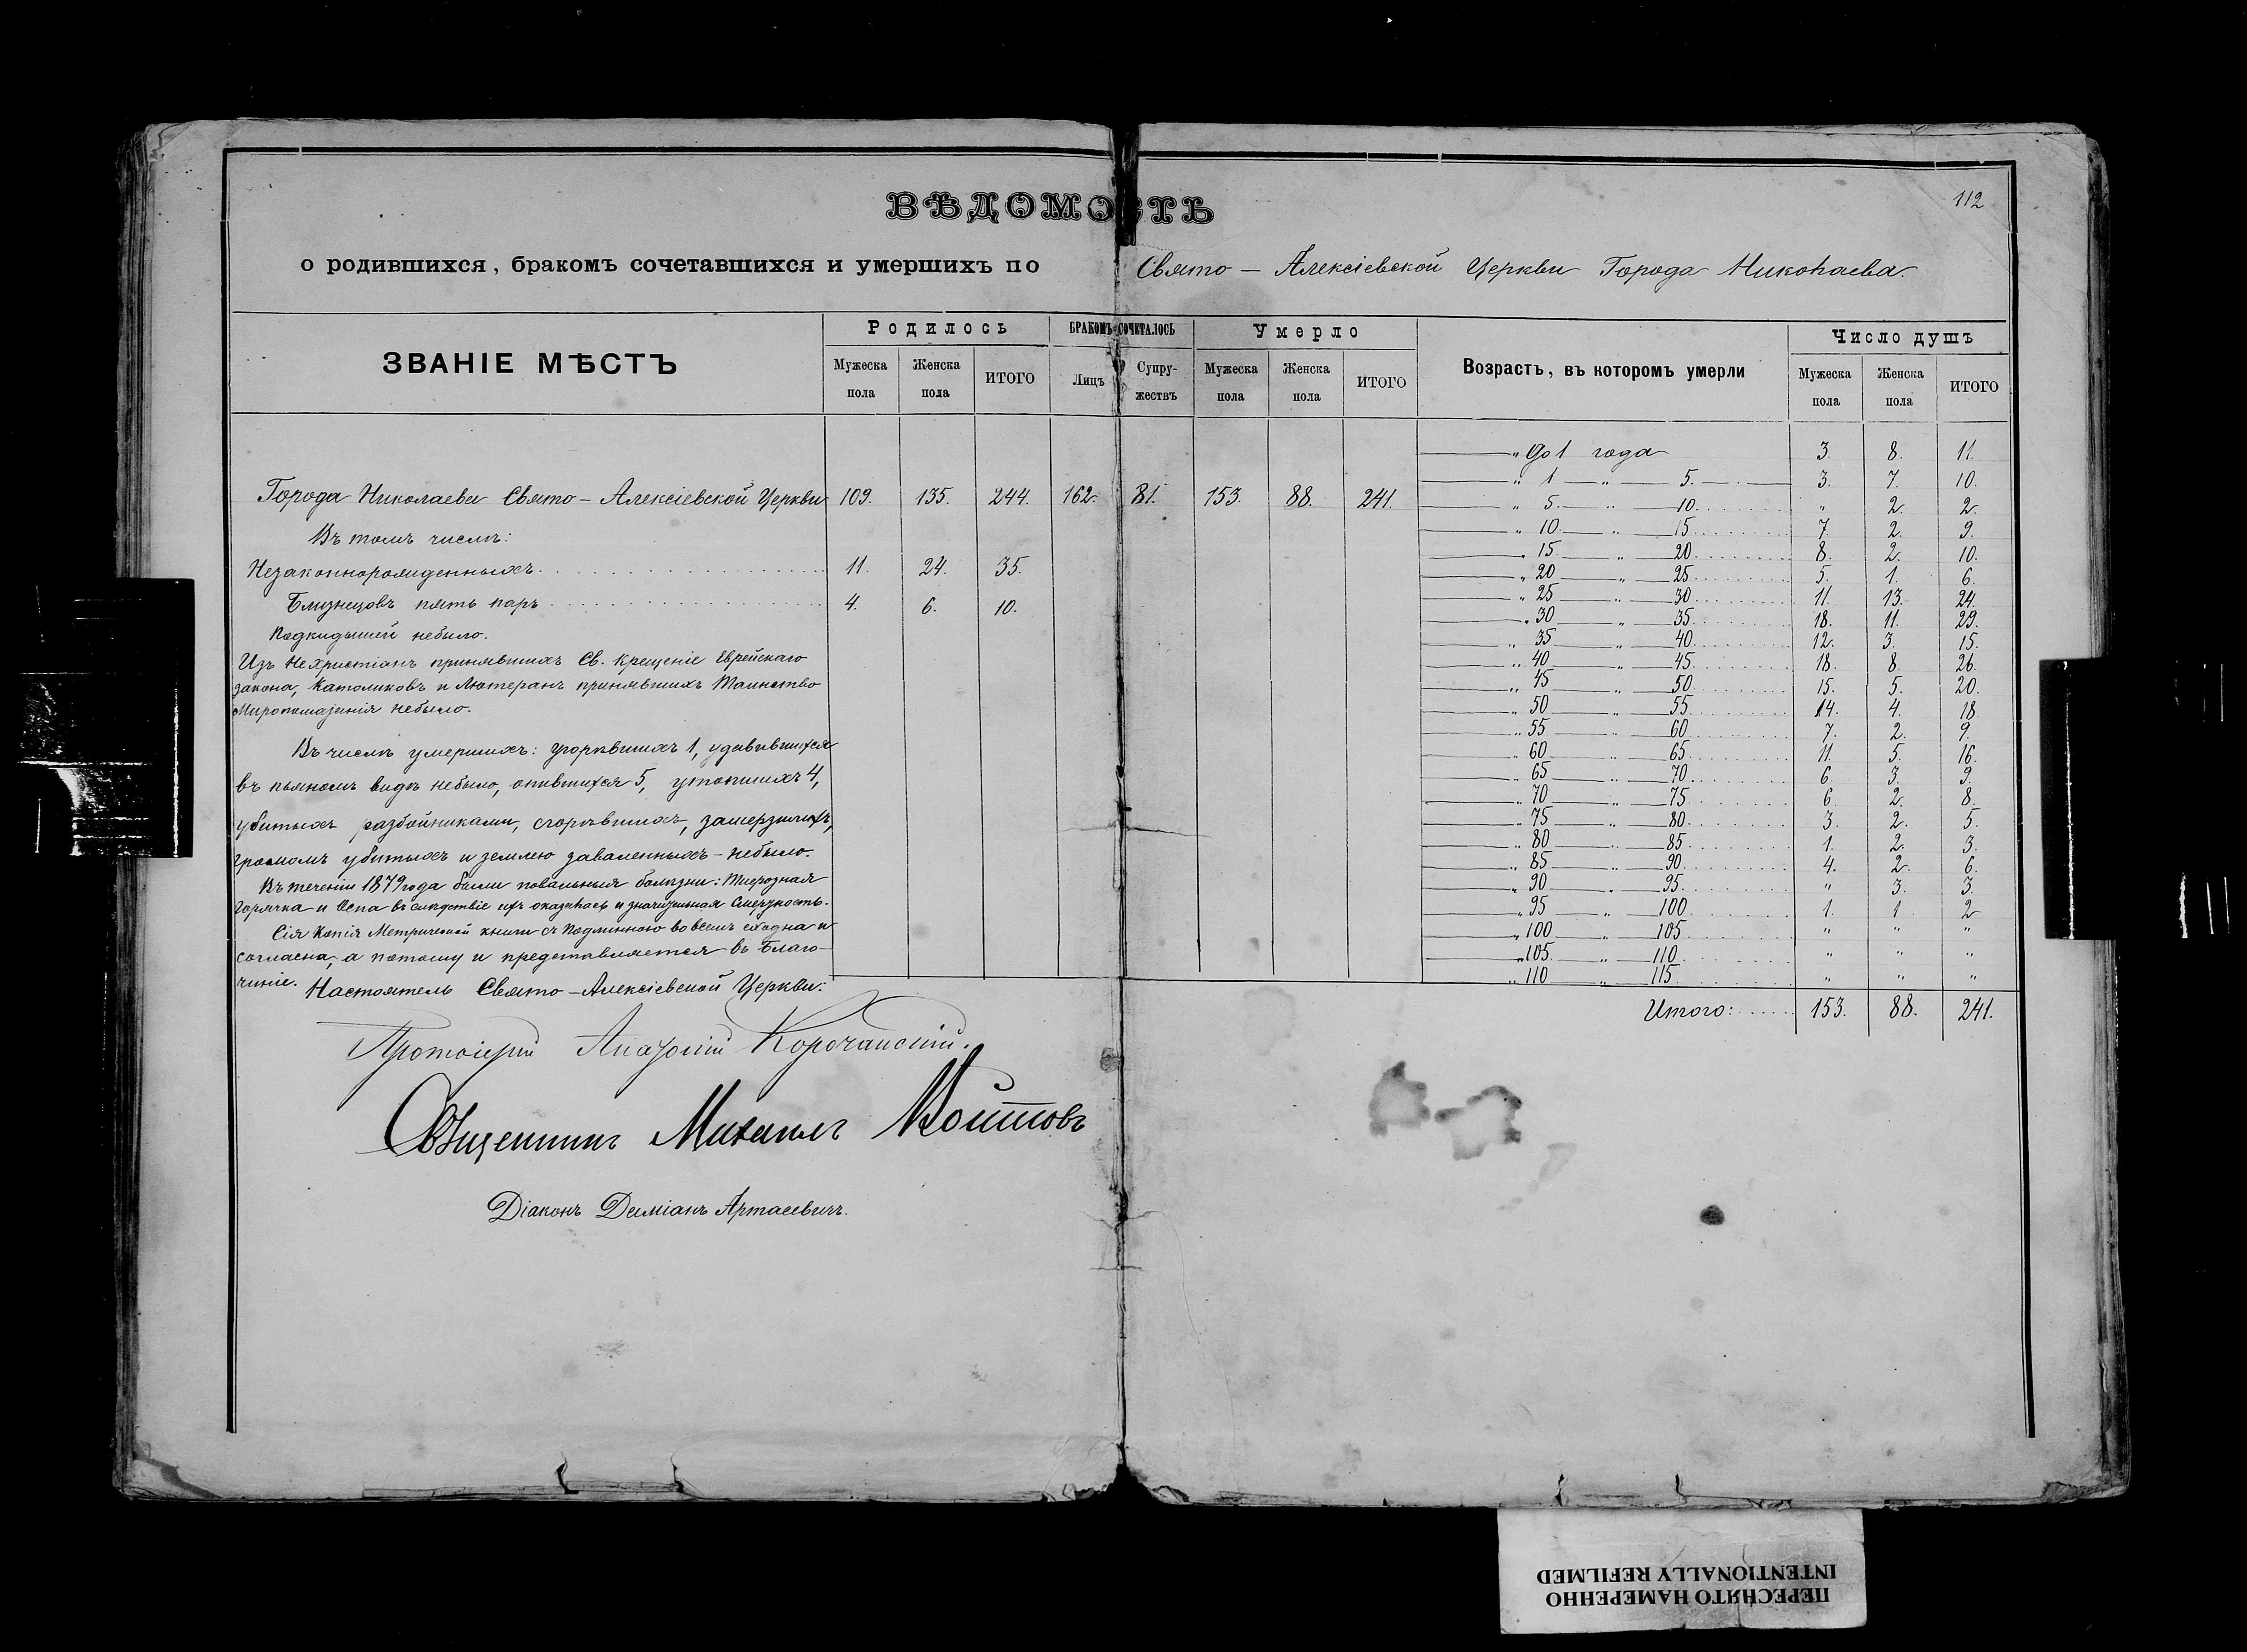 ВѢДОМОСТЬ
112
о родившихся, бракомъ сочетавшихся и умершихъ по Свято-Алексіевской Церкви Города Николаева.
ЗВАНІЕ МѢСТЪ
Родилось
БРАКОМЪ СОЧЕТАЛОСЬ
Умерло
Возрастъ, въ которомъ умерли
Число душъ
Мужеска пола
Женска пола
ИТОГО
Лицъ
Супружествъ
Мужеска пола
Женска пола
ИТОГО
Мужеска пола
Женска пола
ИТОГО
Города Николаева Свято-Алексіевской Церкви 109. 135. 244. 162. 81. 153. 88. 241.
Въ томъ числѣ:
Незаконнорожденныхъ 11. 24. 35.
Близнецовъ пять паръ 4. 6. 10.
Подкидышей небыло.
Изъ Нехристіанъ принявшихъ Св. Крещеніе Еврейскаго
закона, Католиковъ и Лютеранъ принявшихъ Таинство
Миропомазанія небыло.
Въ числѣ умершихъ: угорѣвшихъ 1, удавившихся
въ пьяномъ видѣ небыло, опившихся 5, утопшихъ 4,
убитыхъ разбойниками, сгорѣвшихъ, замерзшихъ,
громомъ убитыхъ и землею заваленныхъ - небыло.
Въ теченіи 1879 года были повальныя болѣзни: Тифозная
горячка и Оспа въ слѣдствіе ихъ оказалась и значительная Смертность.
Сія Копія Метрической книги съ подлинною во всемъ сходна и
согласна, а потому и представляется въ Благо-
чиніе. Настоятель Свято-Алексіевской Церкви:
Протоіерей Корочанскій.
Священникъ Михаилъ Войтовъ
Діаконъ Даміанъ Артасевичъ.
" до 1 года 3. 8. 11.
" 1 " 5. 3. 7. 10.
" 5. " 10. " 2. 2.
" 10. " 15. 7. 2. 9.
" 15. " 20. 8. 2. 10.
" 20 " 25. 5. 1. 6.
" 25 " 30. 11. 13. 24.
" 30 " 35. 18. 11. 29.
" 35 " 40. 12. 3. 15.
" 40 " 45. 18. 8. 26.
" 45 " 50. 15. 5. 20.
" 50 " 55. 14. 4. 18.
" 55 " 60. 7. 2. 9.
" 60 " 65. 11. 5. 16.
" 65 " 70. 6. 3. 9.
" 70 " 75. 6. 2. 8.
" 75 " 80. 3. 2. 5.
" 80 " 85. 1. 2. 3.
" 85 " 90. 4. 2. 6.
" 90 " 95. " 3. 3.
" 95 " 100. 1. 1 2
" 100 " 105. " " "
" 105. " 110. " " "
" 110 " 115. " " "
Итого: 153. 88. 241.
ПЕРЕСНЯТО НАМЕРЕННО
INTENTIONALLY REFILMED